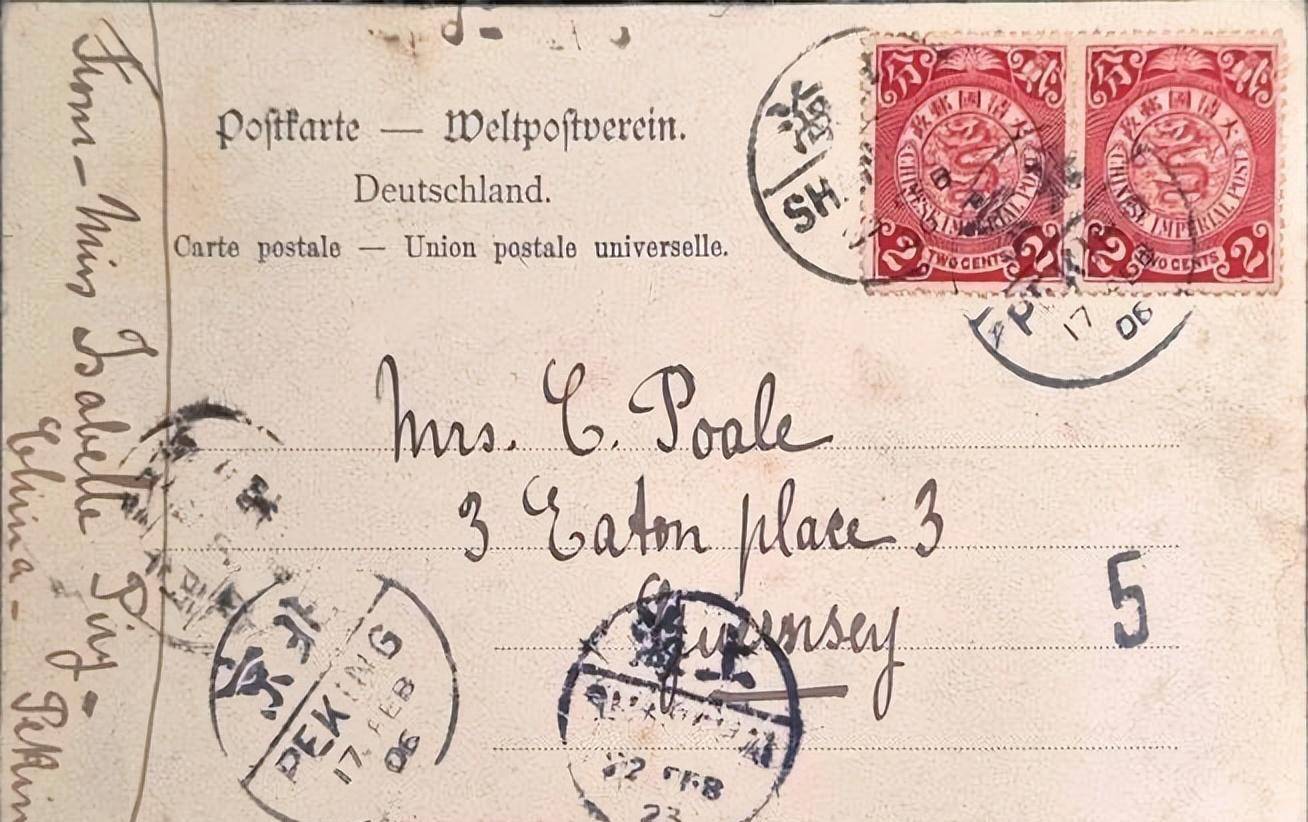 Postkarte — Weltpostverein.
Deutschland.
Carte postale — Union postale universelle.
大清國郵政
CHINESE IMPERIAL POST
2 TWO CENTS 2
大清國郵政
CHINESE IMPERIAL POST
2 TWO CENTS 2
SH
17
06
Mrs. C. Poale
3 Eaton place 3
Guernsey
5
北京
PEKING
17 FEB
06
22 FEB
From - Miss Isabelle Piry -
China - Pekin